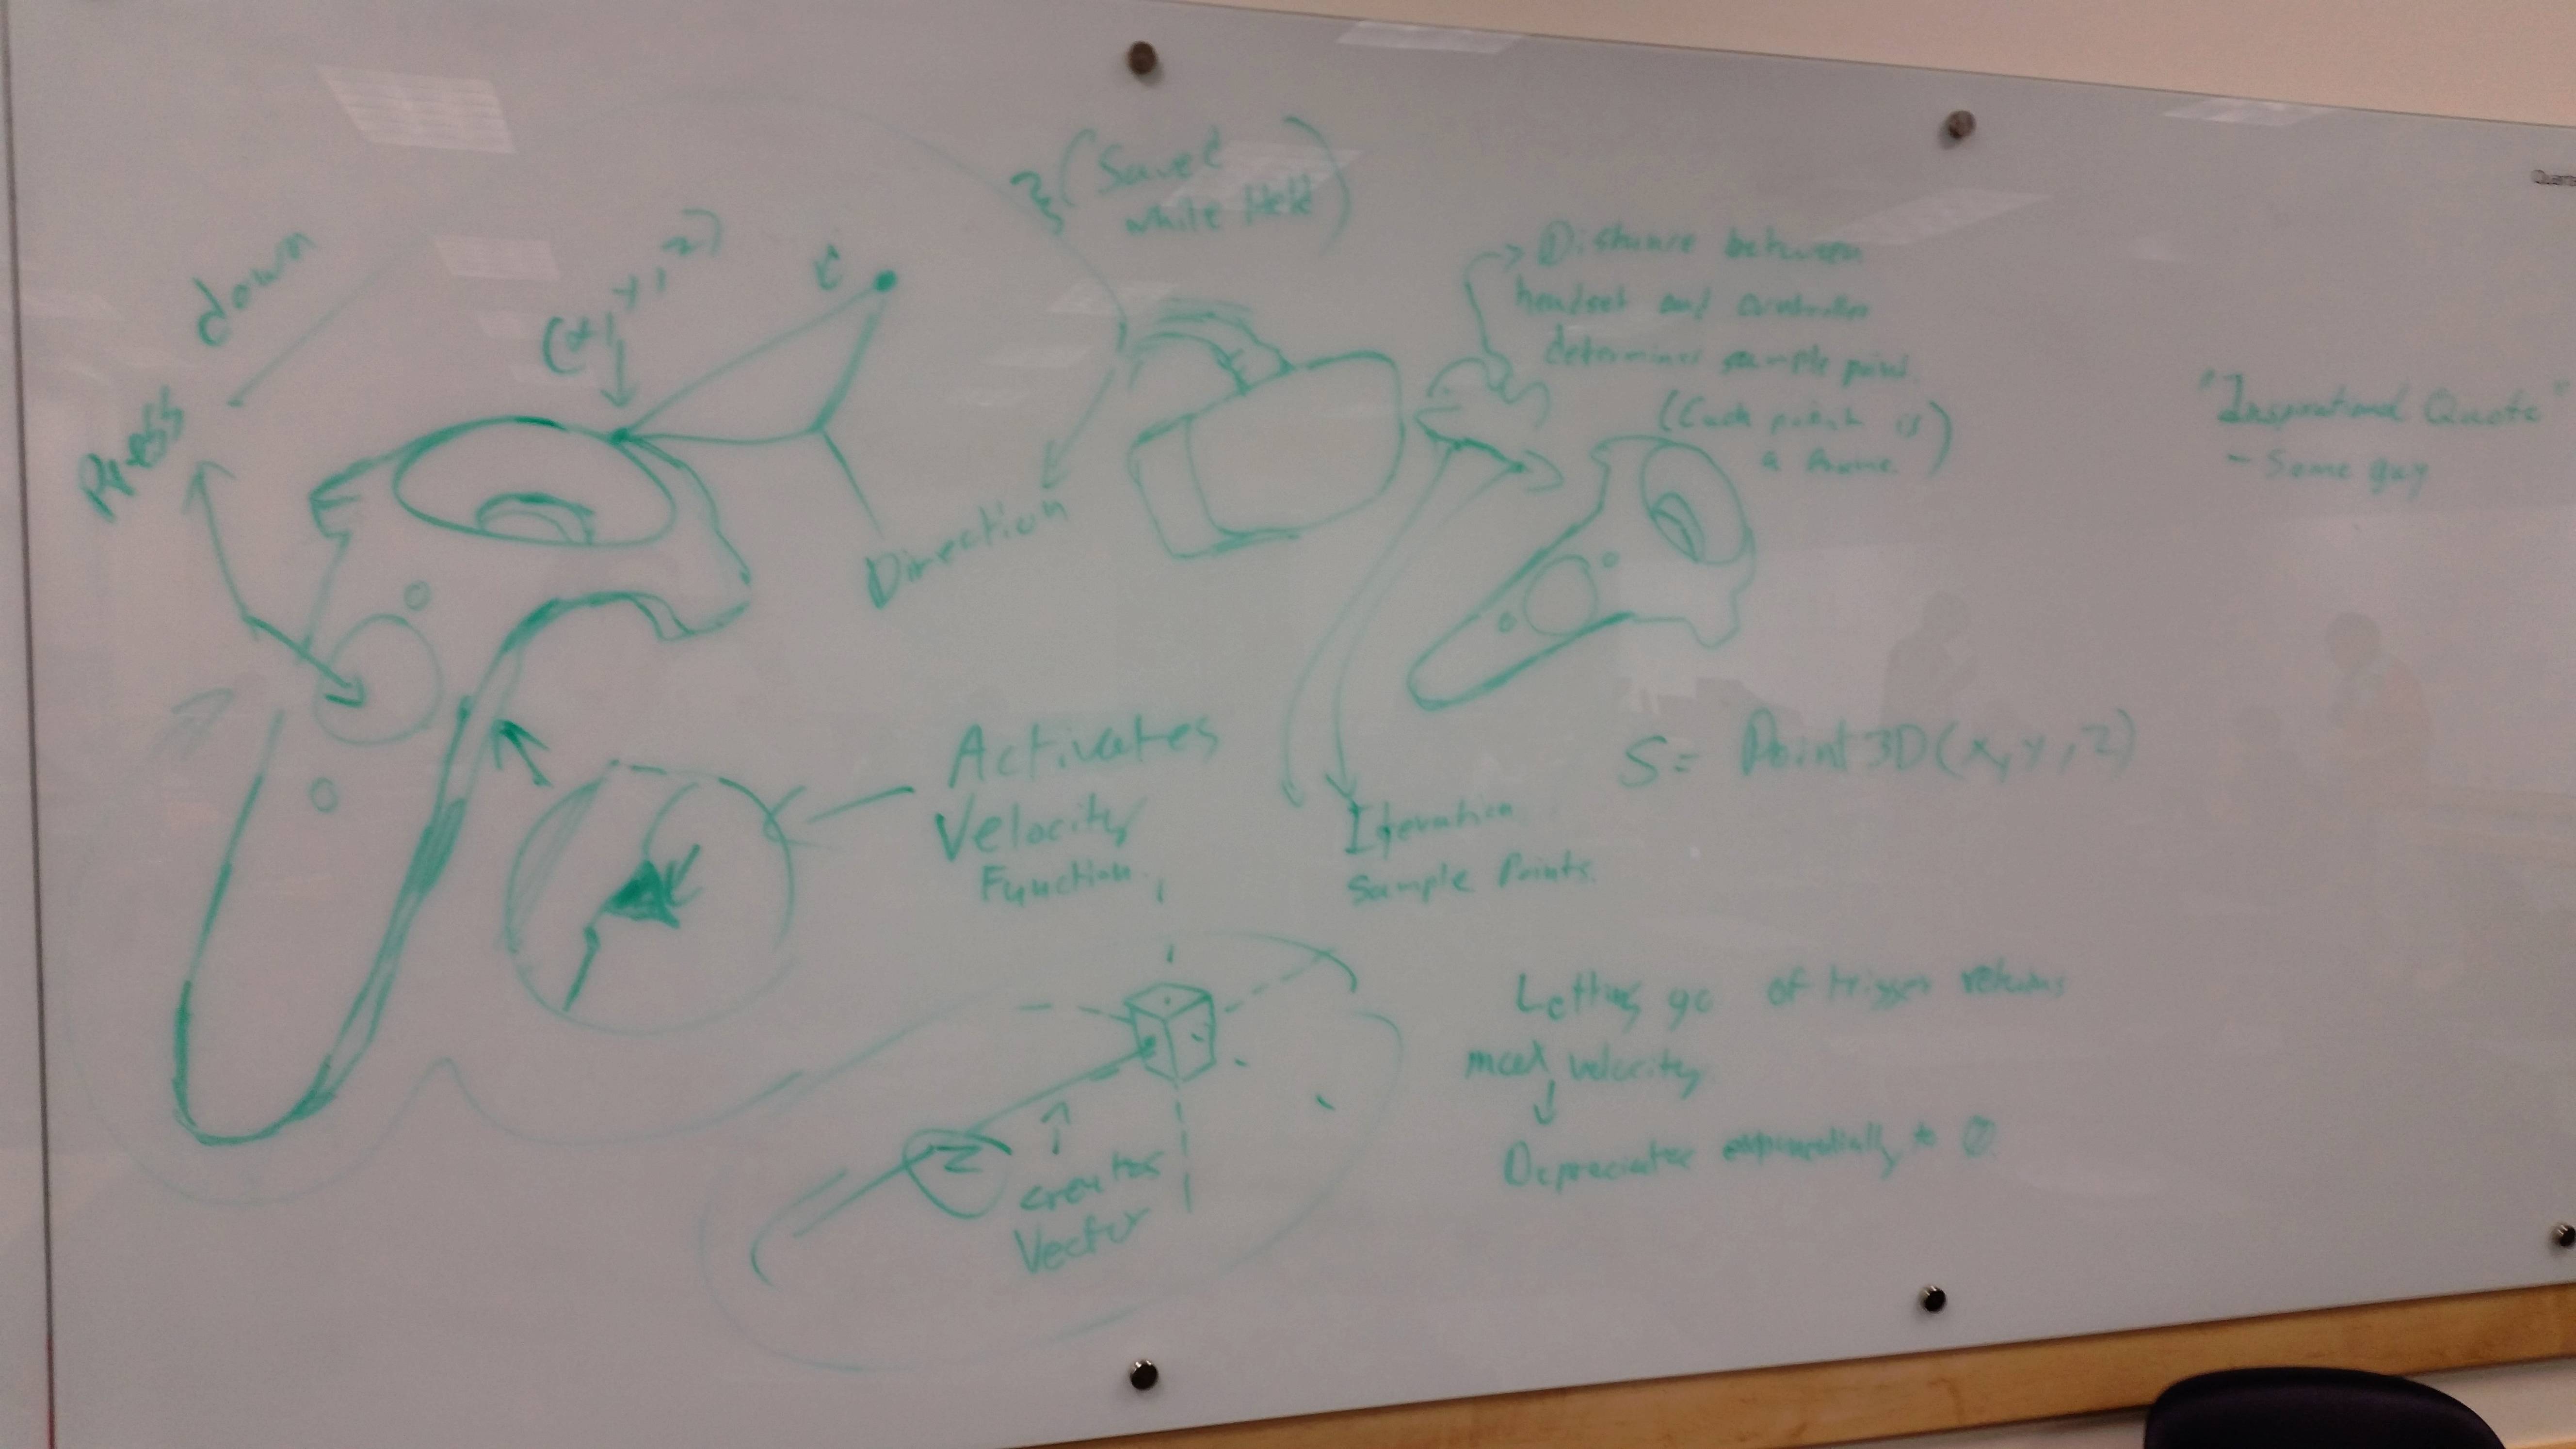 down
Press
(x, y, z)
(Saved
while Held)
Direction
Distance between
headset and controller
determines sample point.
(Each point is
a frame)
"Inspirational Quote"
- Some guy
Activates
Velocity
Function
S = Point3D(x, y, z)
Iteration
Sample Points.
creates
Vector
Letting go of trigger returns
velocity
Depreciates exponentially to 0